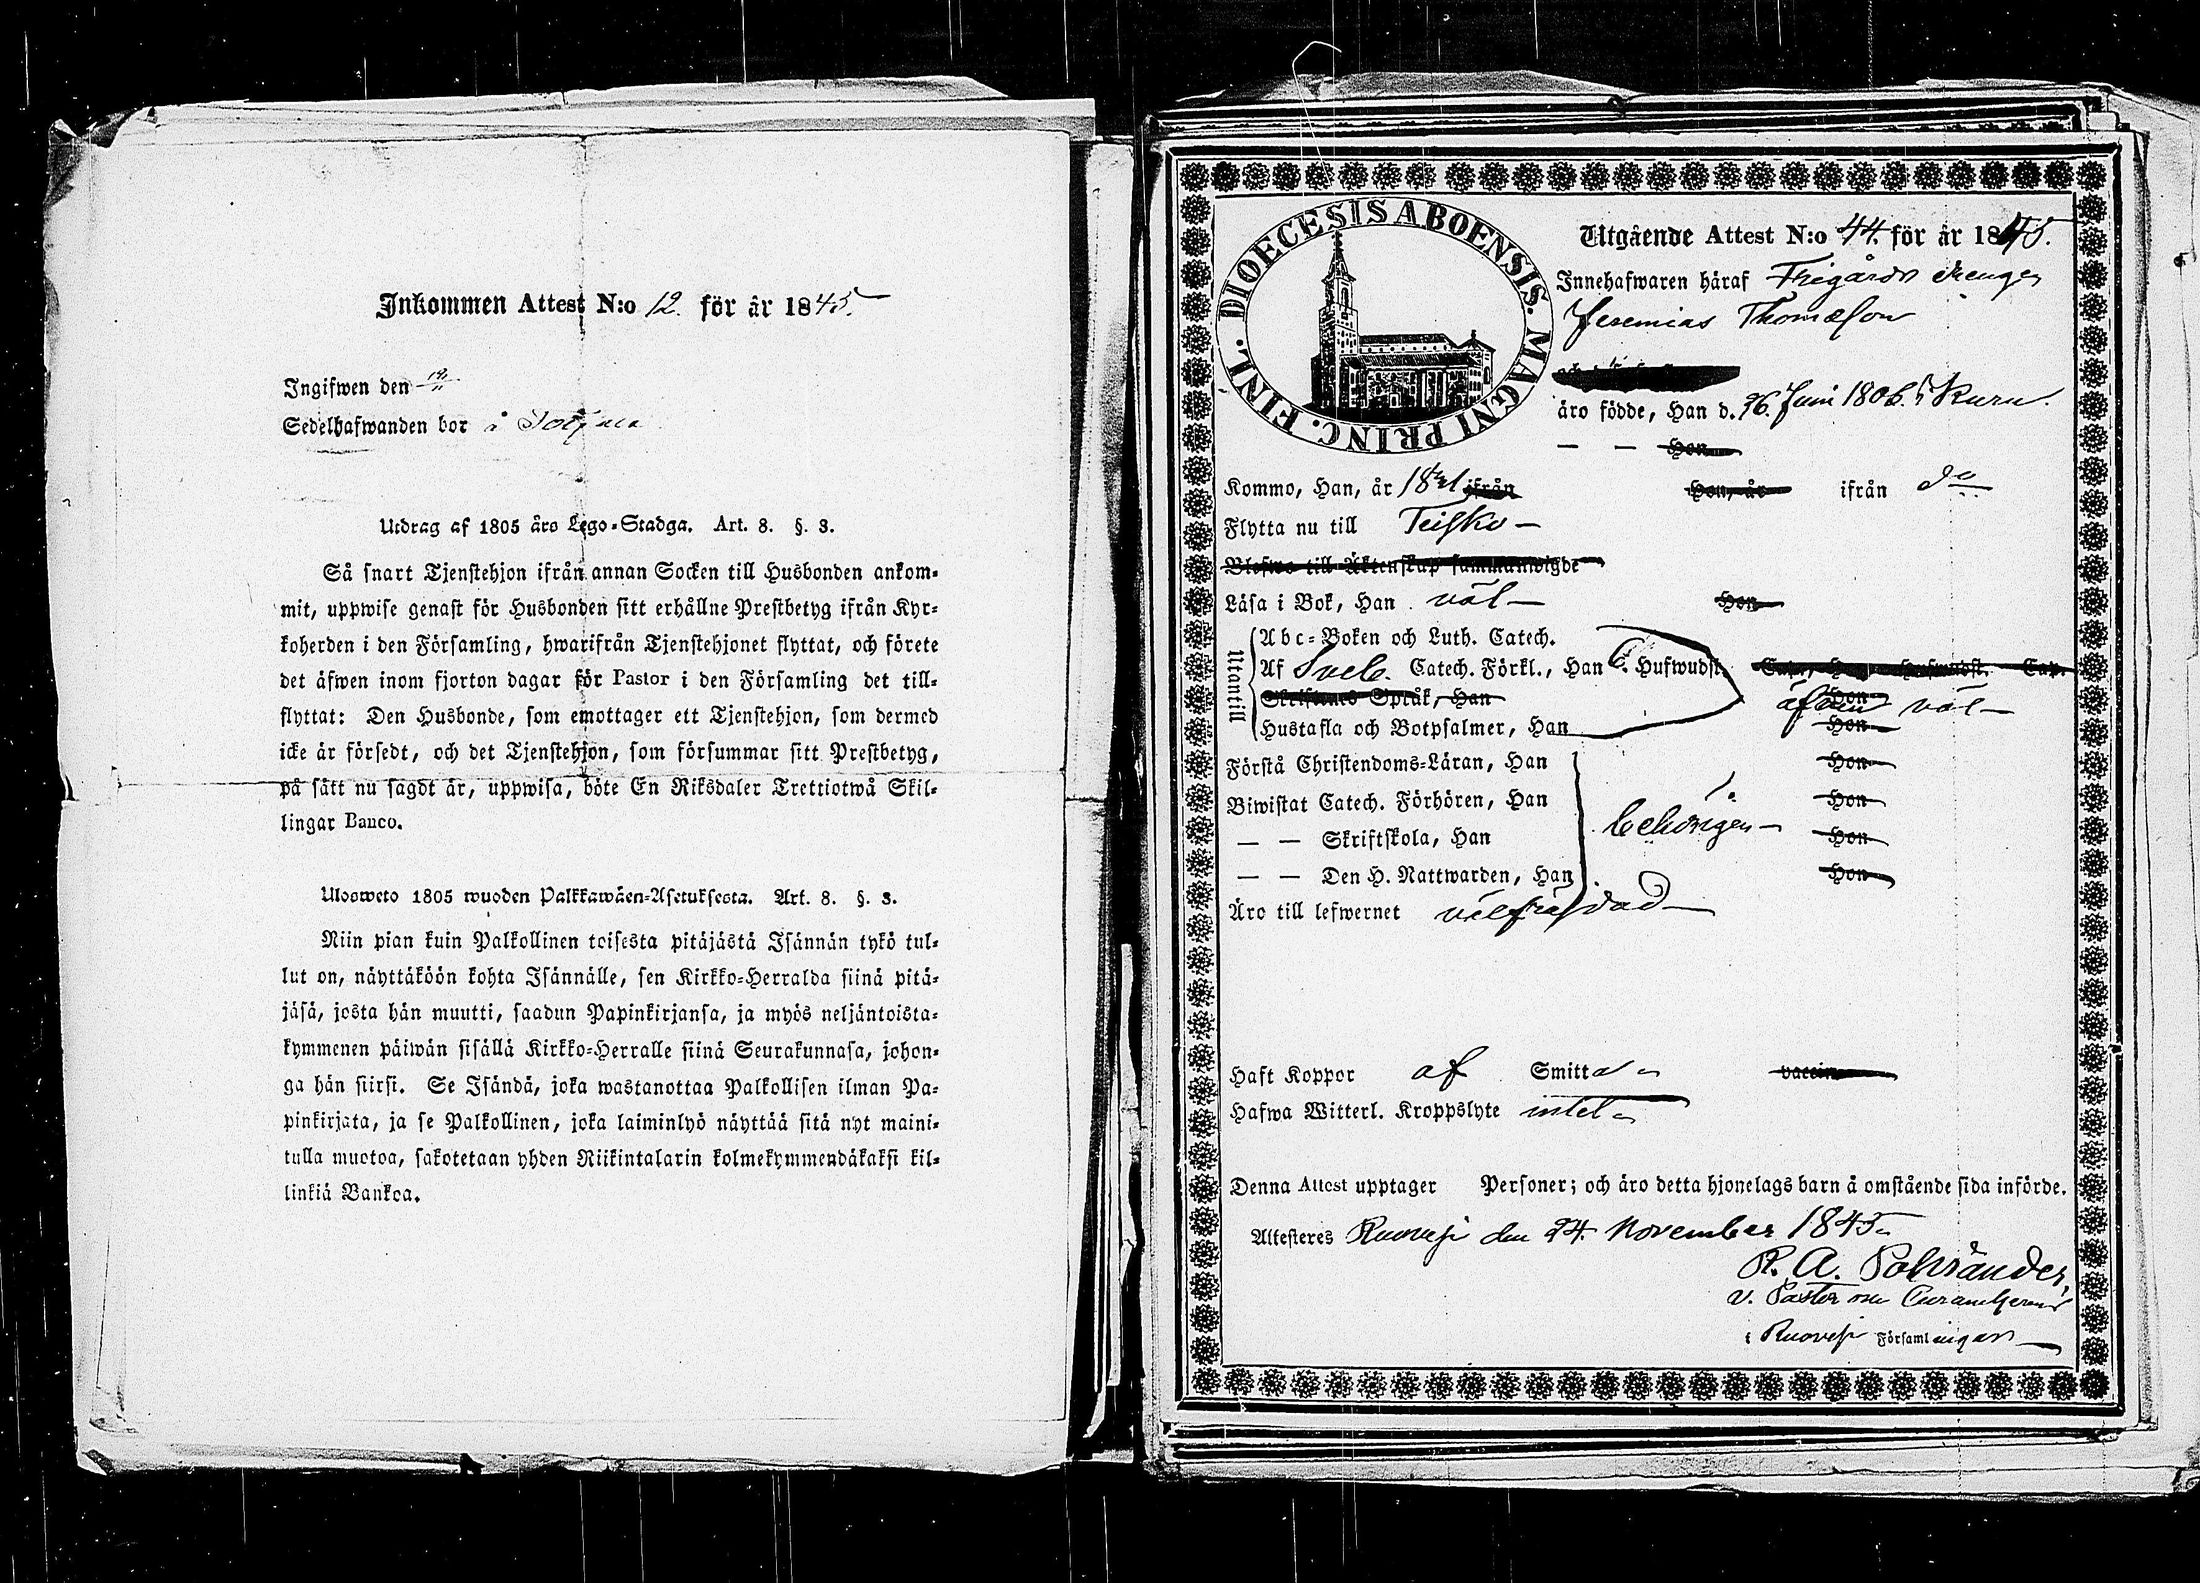 Inkommen Attest N:o 12. för år 1845.
Ingifwen den
Sedelhafwanden bor å
Utdrag af 1805 års Lego-Stadga. Art. 8. §. 3.
Så snart Tjenstehjon ifrån annan Socken till Husbonden ankom-
mit, uppwise genast för Husbonden sitt erhållne Prestbetyg ifrån Kyr-
koherden i den Församling, hwarifrån Tjenstehjonet flyttat, och förete
det äfwen inom fjorton dagar för Pastor i den Församling det till-
flyttat: Den Husbonde, som emottager ett Tjenstehjon, som dermed
icke är försedt, och det Tjenstehjon, som försummar sitt Prestbetyg,
på sätt nu sagdt är, uppwisa, böte En Riksdaler Trettiotwå Skil-
lingar Banco.
Ulosweto 1805 wuoden Palkkawäen-Asetuksesta. Art. 8. §. 3.
Niin pian kuin Palkollinen toisesta pitäjästä Isännän tykö tul-
lut on, näyttäköön kohta Isännälle, sen Kirkko-Herralda siinä pitä-
jäsä, josta hän muutti, saadun Papinkirjansa, ja myös neljäntoista-
kymmenen päiwän sisällä Kirkko-Herralle siinä Seurakunnasa, johon-
ga hän siirsi. Se Isändä, joka wastanottaa Palkollisen ilman Pa-
pinkirjata, ja se Palkollinen, joka laiminlyö näyttää sitä nyt maini-
tulla muotoa, sakotetaan yhden Riikintalarin kolmekymmendäkaksi kil-
linkiä Bankoa.
DIOECESIS ABOENSIS. MAGNI PRINC. FINL.
Utgående Attest N:o 44. för år 1845.
Innehafwaren häraf Frigårds drengen
Jeremias Thomasson
äro födde, Han d. 26. Juni 1806. i Kuru.
— — Hon
Kommo, Han, år 1821 ifrån Hon, år ifrån do
Flytta nu till Teisko —
Blefwo till Äktenskap sammanwigde
Läsa i Bok, Han väl — Hon
Utantill
Abc-Boken och Luth. Catech.
Af Sveb. Catech. Förkl., Han 6. Hufwudst. Cap., Hon Hufwudst. Cap.
Skriftenes Språk, Han Hon
äfven väl —
Hustafla och Botpsalmer, Han Hon
Förstå Christendoms-Läran, Han Hon
Biwistat Catech. Förhören, Han Hon
behörigen —
— — Skriftskola, Han Hon
— — Den H. Nattwarden, Han Hon
Äro till lefwernet välfräjdad —
Haft Koppor af Smitta vaccin
Hafwa Witterl. Kroppslyte intet
Denna Attest upptager Personer; och äro detta hjonelags barn å omstående sida införde.
Attesteres Ruovesi den 24. November 1845.
v. Pastor
i Ruovesi Församlingar